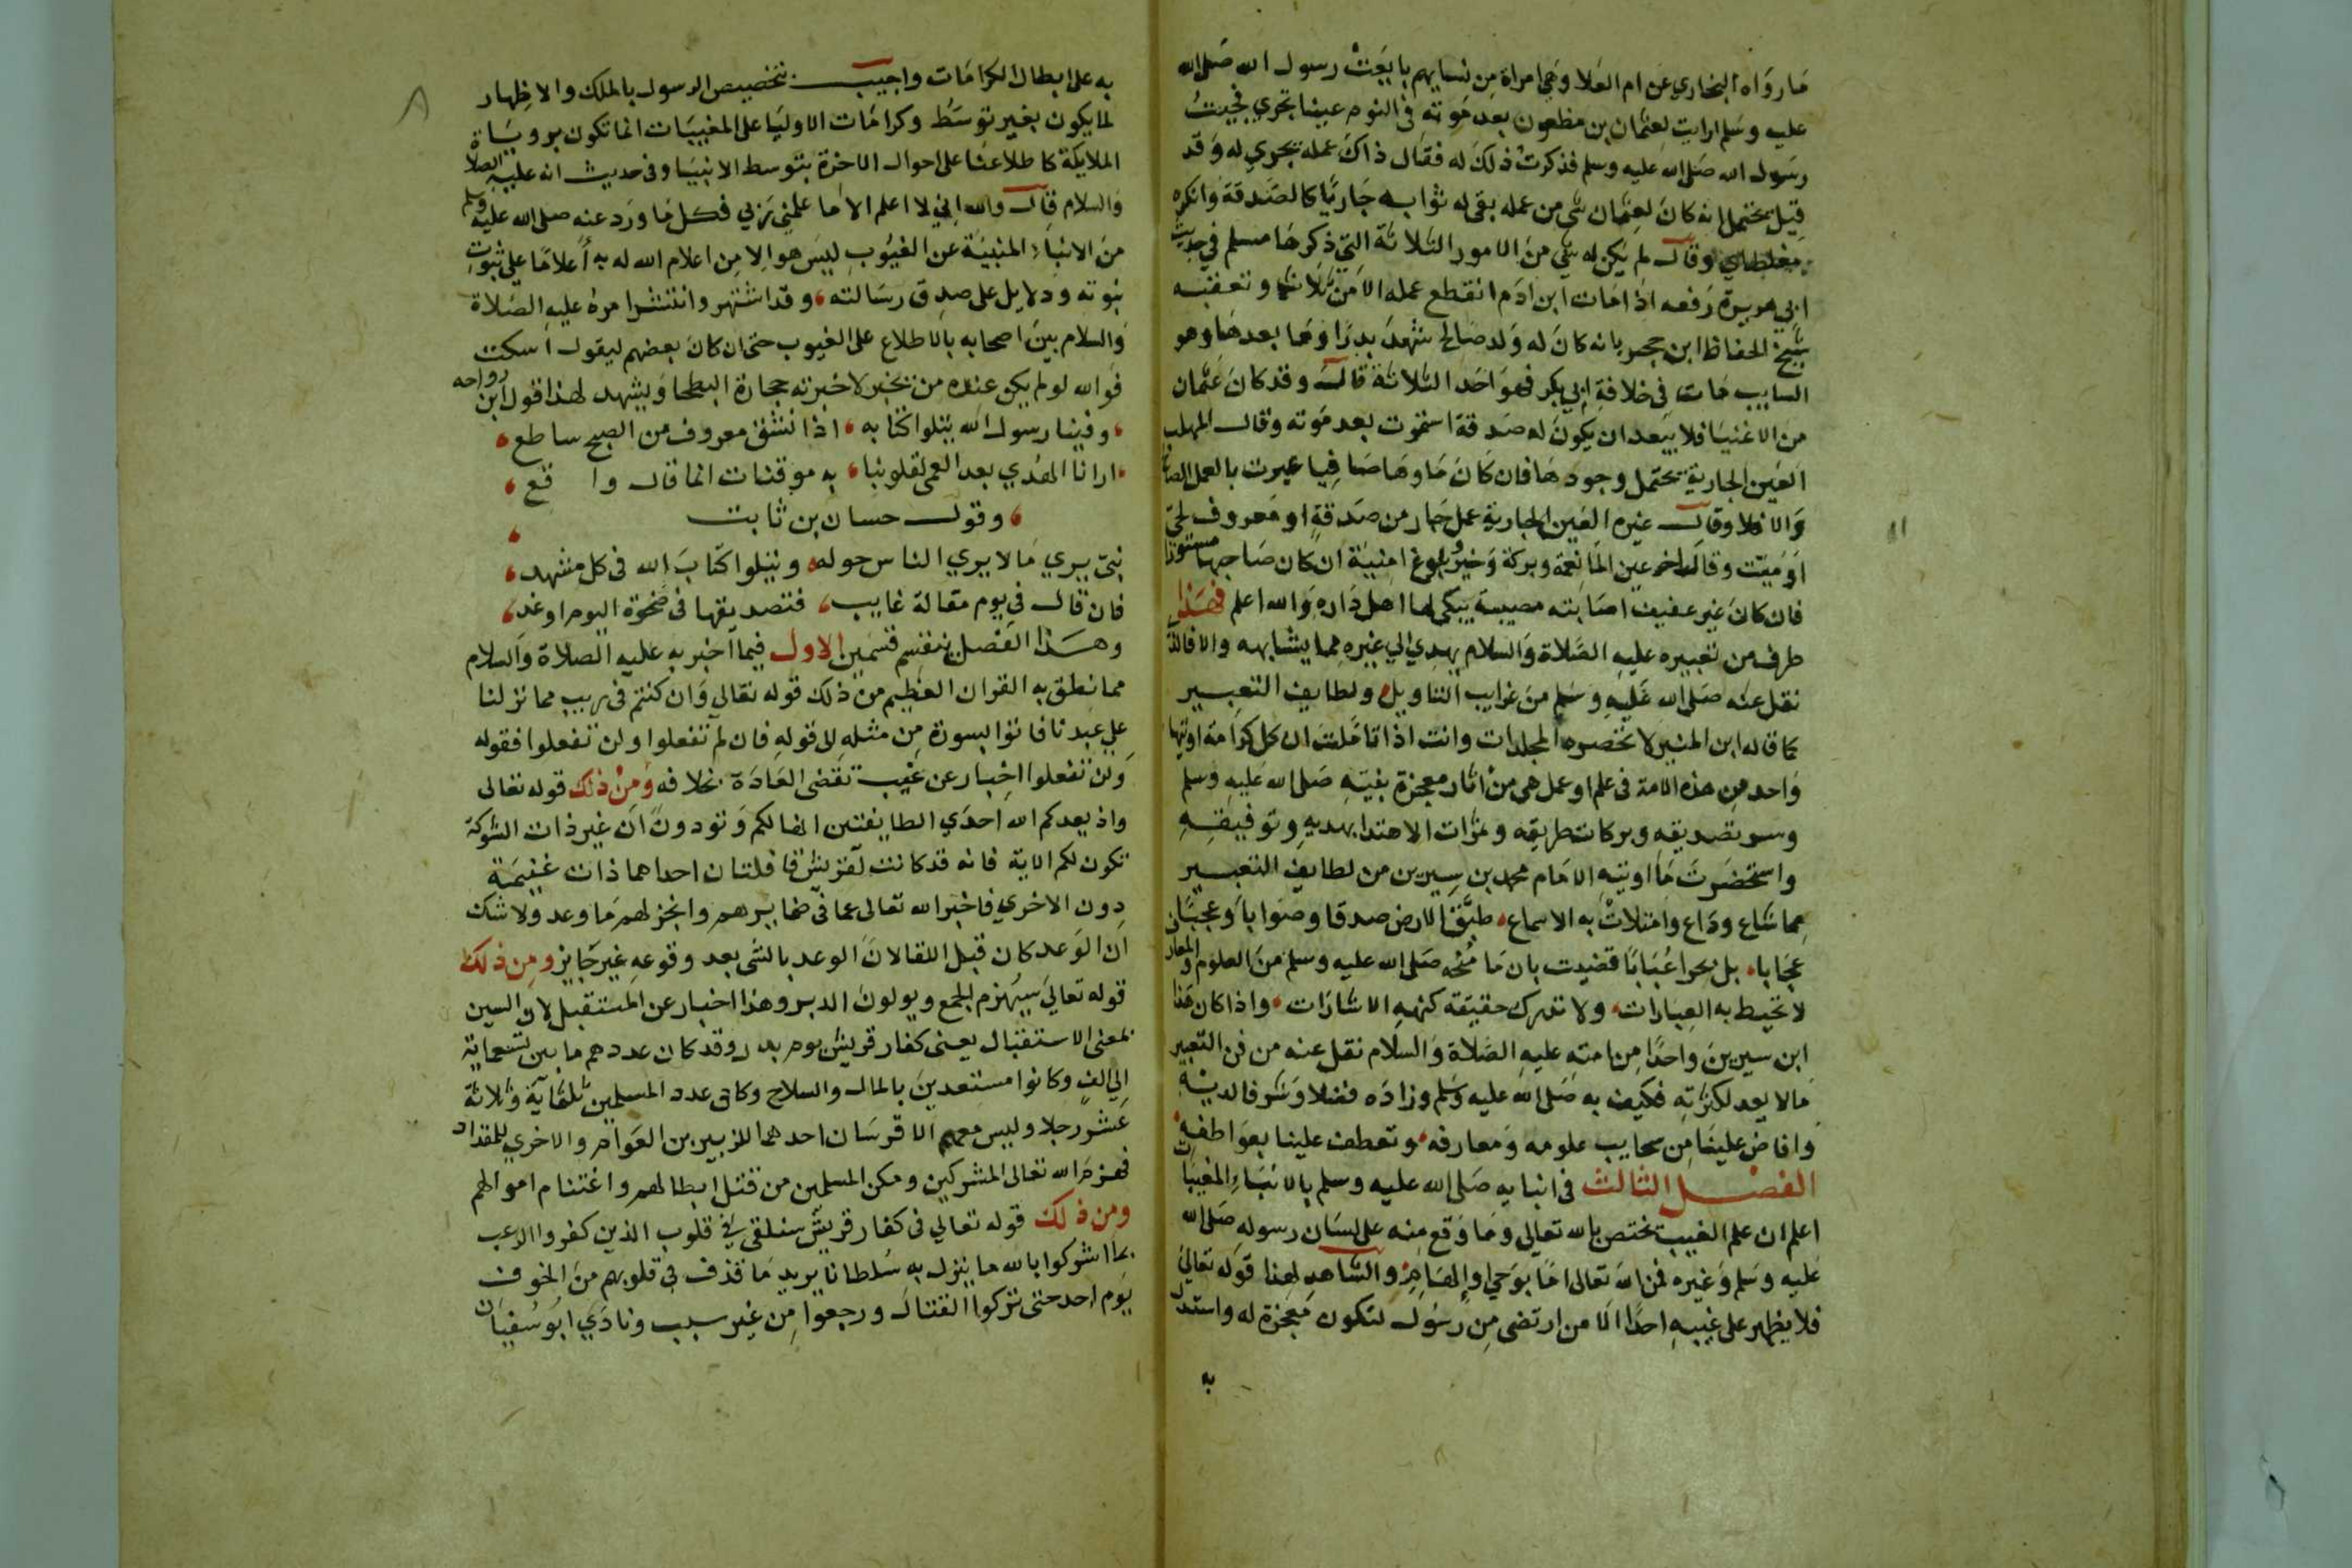 ما رواه البخاري عن ام العلا وهي امراة من نسايهم بايعت رسول الله صلى الله
عليه وسلم ارايت لعثمان بن مظعون بعد موته في النوم عينا تجري فجيت
رسول الله صلى الله عليه وسلم فذكرت ذلك له فقال ذاك عمله يجري له وقد
قيل يحتمل انه كان لعثمان شي من عمله بقي له ثوابه جاريا كالصدقة وانكره
مغلطاي وقال لم يكن له شي من الامور الثلاثة التي ذكرها مسلم في حديث
ابي هريرة رفعه اذا مات ابن ادم انقطع عمله الا من ثلاث وتعقبه
شيخ الحفاظ ابن حجر بانه كان له ولد صالح شهد بدرا وما بعدها وهو
السايب مات في خلافة ابي بكر فهو احد الثلاثة قال وقد كان عثمان
من الاغنيا فلا يبعد ان يكون له صدقة استمرت بعد موته وقال المهلب
العين الجارية تحتمل وجوها فان كان ماوها صافيا عبرت بالعمل الصالح
والا فلا وقال غيره العين الجارية عمل جار من صدقة او معروف لحي
او ميت وقال اخر عين الما نعمة وبركة وخير وبلوغ امنية ان كان صاحبها مستورا
فان كان غير عفيف اصابته مصيبة يبكي لها اهل داره والله اعلم فهذا
طرف من تعبيره عليه الصلاة والسلام يهدي الي غيره مما يشابهه والا فالذي
نقل عنه صلى الله عليه وسلم من غرايب التاويل ولطايف التعبير
كما قاله ابن المنير لا تحصره المجلدات وانت اذا تاملت ان كل كرامة اوتيها
واحد من هذه الامة في علم او عمل هي من اثار معجزة نبيه صلى الله عليه وسلم
وسر تصديقه وبركات طريقه وثمرات الاهتدا بهديه وتوفيقه
واستحضرت ما اوتيه الامام محمد بن سيرين من لطايف التعبير
مما شاع وذاع وامتلات به الاسماع طبق الارض صدقا وصوابا وعجبا
عجابا بل بحرا عبابا قضيت بان ما منحه صلى الله عليه وسلم من العلوم والمعارف
لا تحيط به العبارات ولا تدرك حقيقة كنهه الاشارات واذا كان هذا
ابن سيرين واحدا من امته عليه الصلاة والسلام نقل عنه من فن التعبير
مالا يعد لكثرته فكيف به صلى الله عليه وسلم وزاده فضلا وشرفا لديه
وافاض علينا من سحايب علومه ومعارفه وتعطف علينا بعواطفه
الفصل الثالث في انبايه صلى الله عليه وسلم بالانباء المغيبات
اعلم ان علم الغيب يختص بالله تعالى وما وقع منه على لسان رسوله صلى الله
عليه وسلم وغيره فمن الله تعالى اما بوحي او الهام والشاهد لهذا قوله تعالى
فلا يظهر على غيبه احدا الا من ارتضى من رسول لتكون معجزة له واستدل
به
به على ابطال الكرامات واجيب بتخصيص الرسول بالملك والاظهار
لما يكون بغير توسط وكرامات الاوليا على المغيبات انما تكون برويات
الملايكة كاطلاعنا على احوال الاخرة بتوسط الانبيا وفي حديث انه عليه الصلاة
والسلام قال والله اني لا اعلم الا ما علمني ربي فكل ما ورد عنه صلى الله عليه وسلم
من الانباء المنبية عن الغيوب ليس هو الا من اعلام الله له به أعلاما على ثبوت
نبوته ودلايل على صدق رسالته وقد اشتهر وانتشر امره عليه الصلاة
والسلام بين اصحابه بالاطلاع على الغيوب حتى ان كان بعضهم ليقول اسكت
فوالله لو لم يكن عنده من يخبر لاخبرته حجارة البطحا ويشهد لهذا قول ابن رواحه
وفينا رسول الله يتلوا كتابه اذا انشق معروف من الصبح ساطع
ارانا الهدي بعد العمى فقلوبنا به موقنات انما قال واقع
وقول حسان بن ثابت
نبي يري ما لا يري الناس حوله ويتلوا كتاب الله في كل مشهد
فان قال في يوم مقالة غايب فتصديقها في ضحوة اليوم او غد
وهذا الفصل ينقسم قسمين الاول فيما اخبر به عليه الصلاة والسلام
مما نطق به القران العظيم من ذلك قوله تعالى وان كنتم في ريب مما نزلنا
على عبدنا فاتوا بسورة من مثله الى قوله فان لم تفعلوا ولن تفعلوا فقوله
ولن تفعلوا اخبار عن غيب تقضى العادة بخلافه ومن ذلك قوله تعالى
واذ يعدكم الله احدي الطايفتين انها لكم وتودون ان غير ذات الشوكة
تكون لكم الاية فانه قد كانت لقريش قافلتان احداهما ذات غنيمة
دون الاخري فاخبر الله تعالى عما في ضمايرهم وانجز لهم ما وعد ولا شك
ان الوعد كان قبل اللقا لان الوعد بالشي بعد وقوعه غير جايز ومن ذلك
قوله تعالى سيهزم الجمع ويولون الدبر وهذا اخبار عن المستقبل لان السين
بمعنى الاستقبال يعني كفار قريش يوم بدر وقد كان عددهم ما بين تسعماية
الي الف وكانوا مستعدين بالمال والسلاح وكان عدد المسلمين ثلثماية وثلاثة
عشر رجلا وليس معهم الا فرسان احدهما للزبير بن العوام والاخري للمقداد
فهزم الله تعالى المشركين ومكن المسلمين من قتل ابطالهم واغتنام اموالهم
ومن ذلك قوله تعالي في كفار قريش سنلقي في قلوب الذين كفروا الرعب
بما اشركوا بالله ما ينزل به سلطانا يريد ما قذف في قلوبهم من الخوف
يوم احد حتى تركوا القتال ورجعوا من غير سبب ونادي ابو سفيان